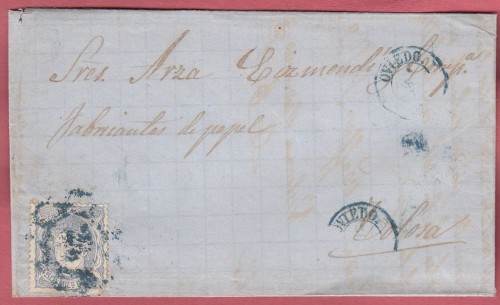 Sres. Arza Eizmendi y Compª
OVIEDO
Fabricantes de papel
OVIEDO
Tolosa